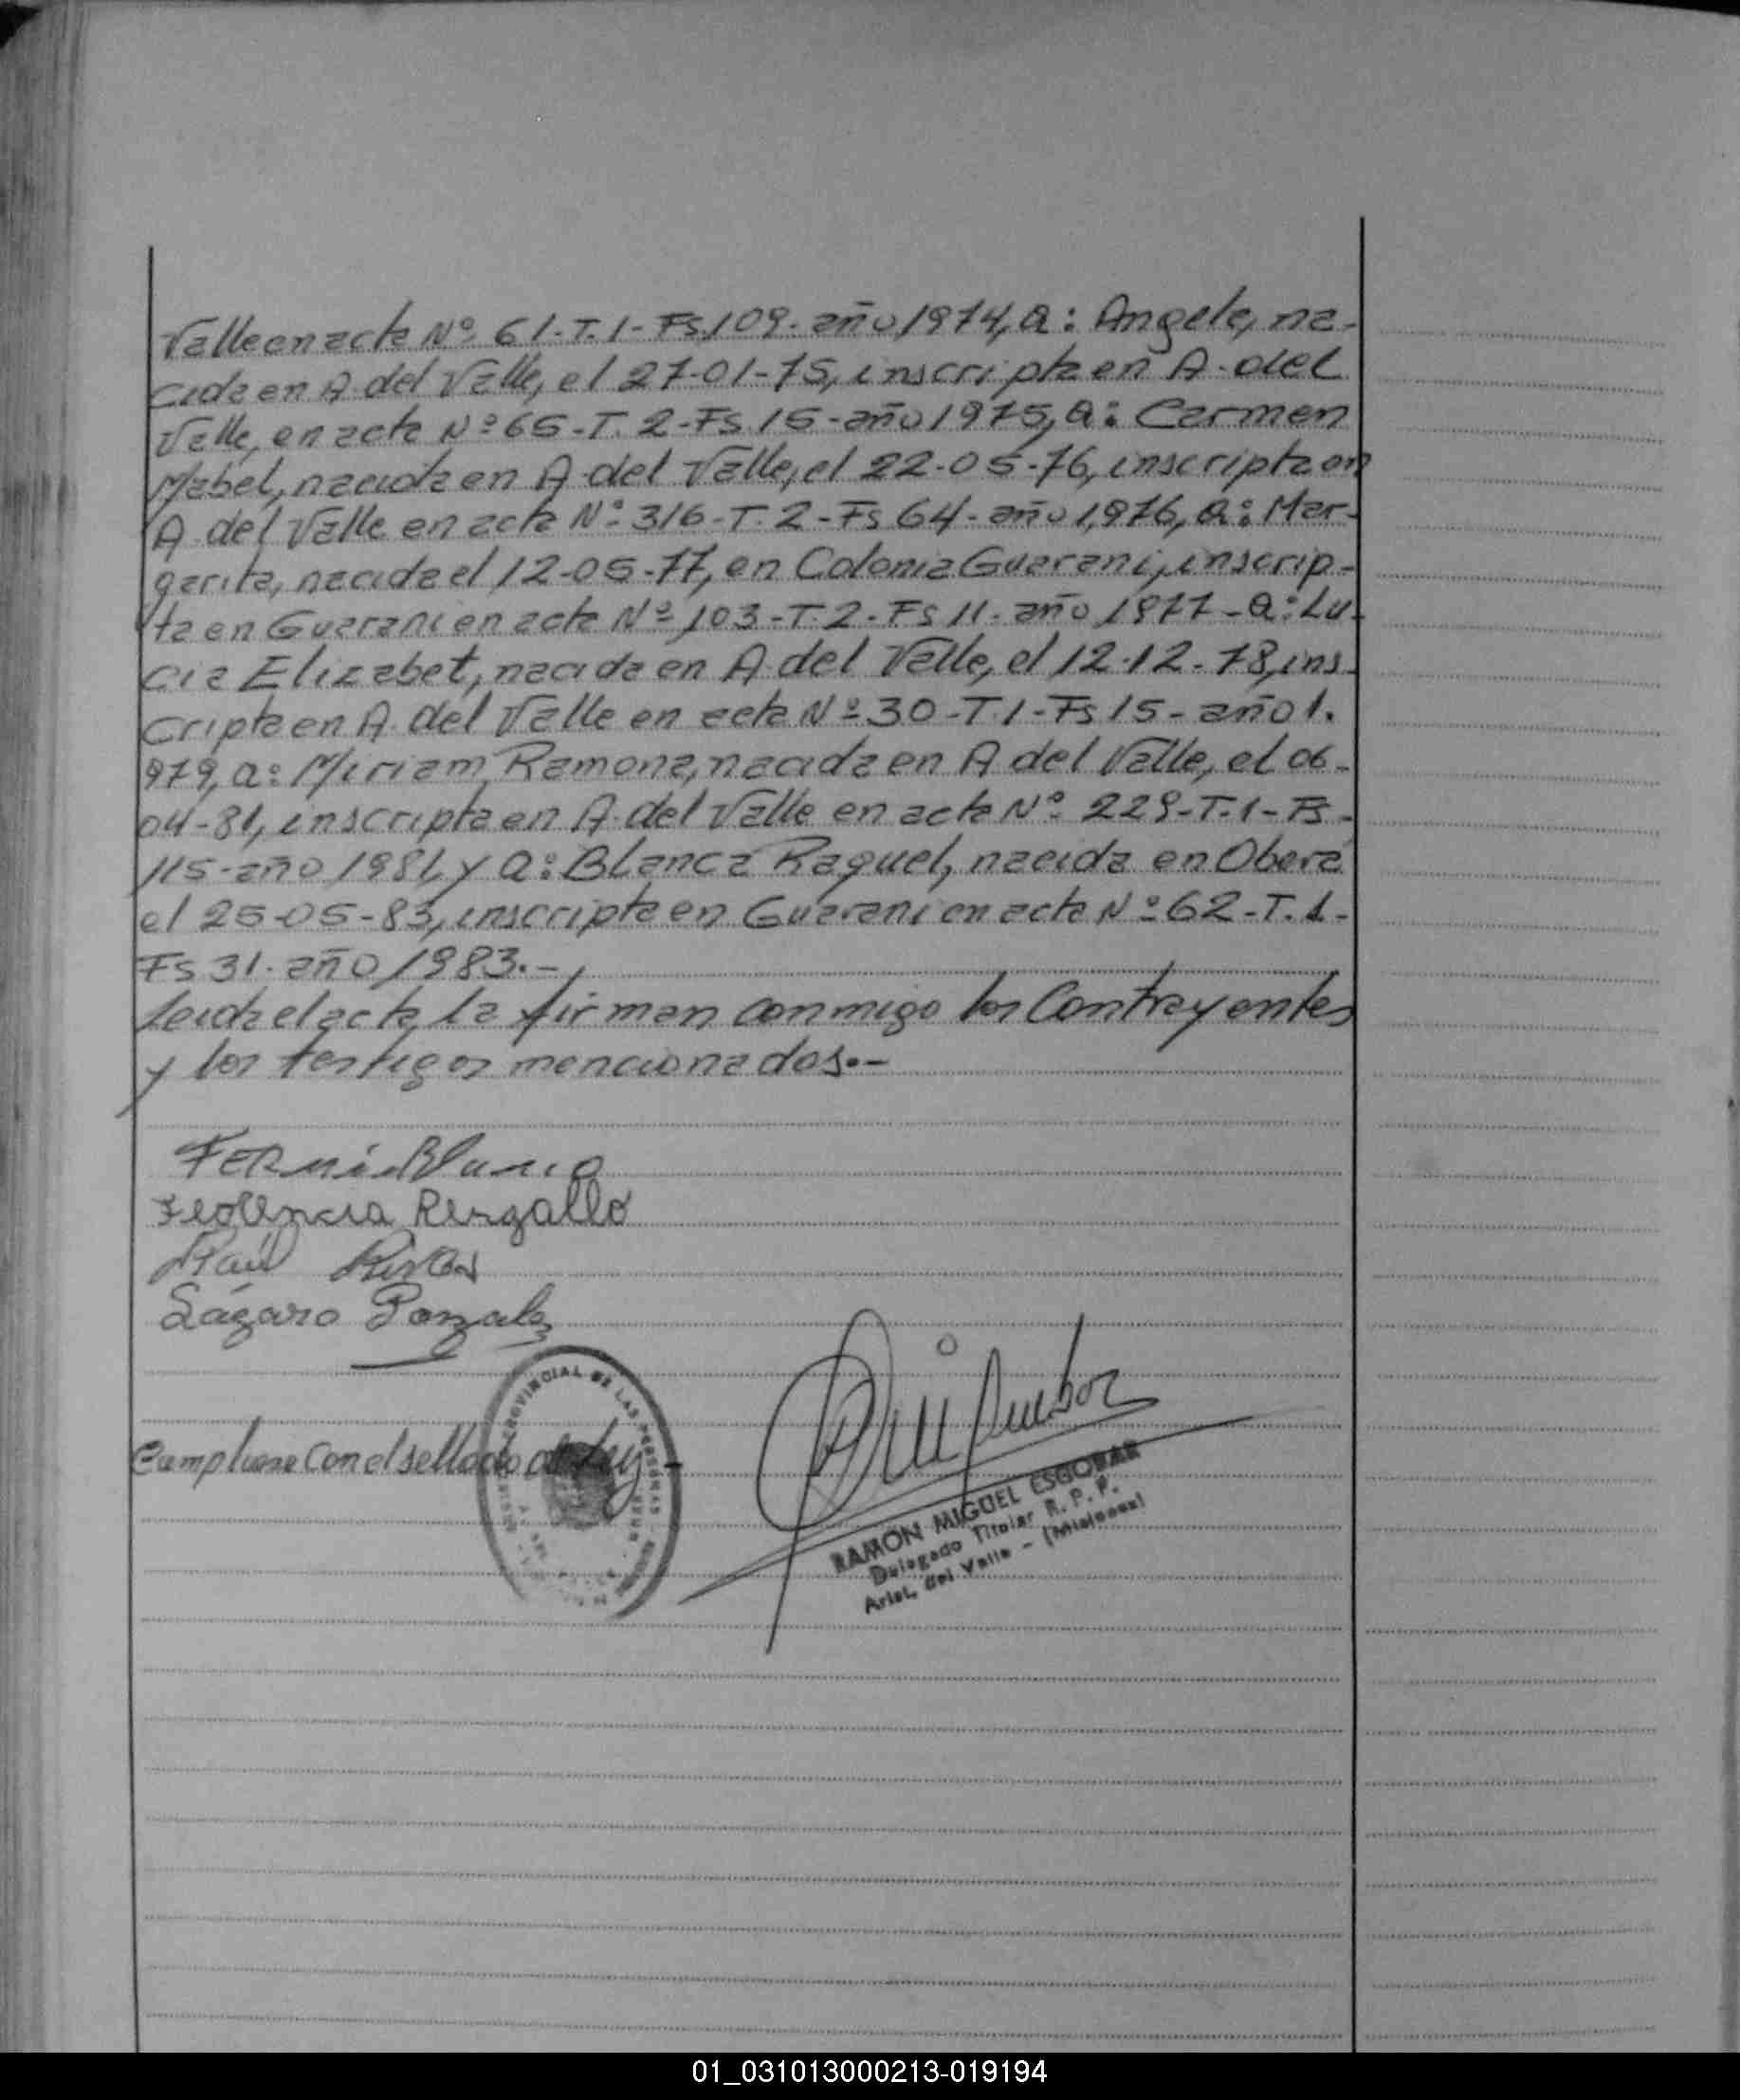 Valle en acta Nº 61-T.1-Fs.109-año 1974, a: Angela, na-
cida en A. del Valle, el 27-01-75, inscripta en A. del
Valle, en acta Nº 65-T.2-Fs.15-año 1975, a: Carmen
Mabel, nacida en A. del Valle, el 22-05-76, inscripta en
A. del Valle en acta Nº 316-T.2-Fs 64-año 1,976, a: Mar-
garita, nacida el 12-05-77, en Colonia Guarani, inscrip-
ta en Guarani en acta Nº 103-T.2-Fs 11-año 1977-a: Lu-
cia Elizabet, nacida en A. del Valle, el 12-12-78, ins-
cripta en A. del Valle en acta Nº 30-T.1-Fs 15-año 1.
979, a: Miriam Ramona, nacida en A del Valle, el 06-
04-81, inscripta en A. del Valle en acta Nº 229-T.1-Fs-
115-año 1981, y a: Blanca Raquel, nacida en Oberá
el 25-05-83, inscripta en Guarani en acta Nº 62-T.1-
Fs 31-año 1983.-
Leida el acta, la firman conmigo los Contrayentes
y los testigos mencionados.-
Fermin Blanco
Raúl Rivas
Lázaro Gonzalez
PROVINCIAL DE LAS PERSONAS
Cumpliose Con el sellado de Ley-
RAMON MIGUEL ESCOBAR
Delegado Titular R. P. P.
Arist. del Valle - (Misiones)
01_031013000213-019194